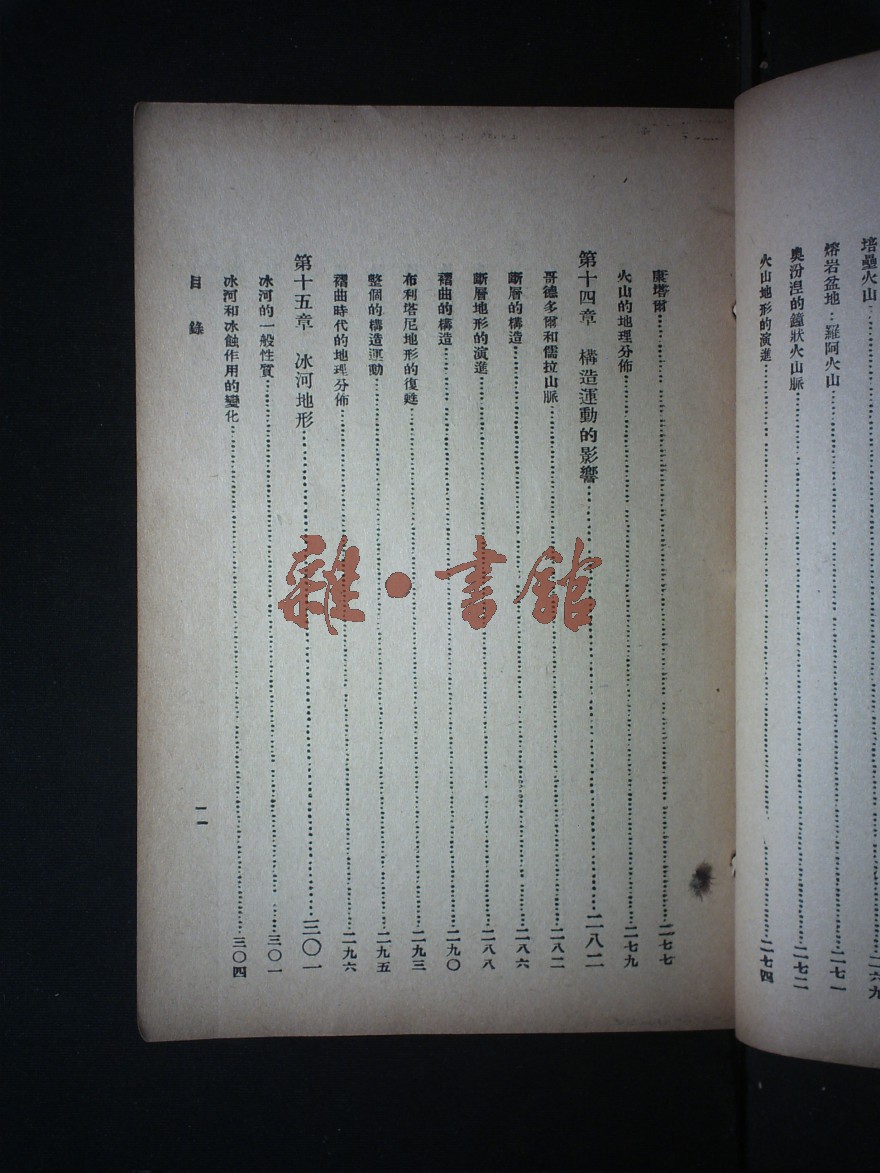 培壘火山……二六九
熔岩盆地：羅阿火山……二七一
奧汾涅的鐘狀火山脈……二七二
火山地形的演進……二七四
康塔爾……二七七
火山的地理分佈……二七九
第十四章　構造運動的影響……二八二
哥德多爾和儒拉山脈……二八二
斷層的構造……二八六
斷層地形的演進……二八八
褶曲的構造……二九〇
布利塔尼地形的復甦……二九三
整個的構造運動……二九五
褶曲時代的地理分佈……二九六
第十五章　冰河地形……三〇一
冰河的一般性質……三〇一
冰河和冰蝕作用的變化……三〇四
目錄
一一
雜·書館